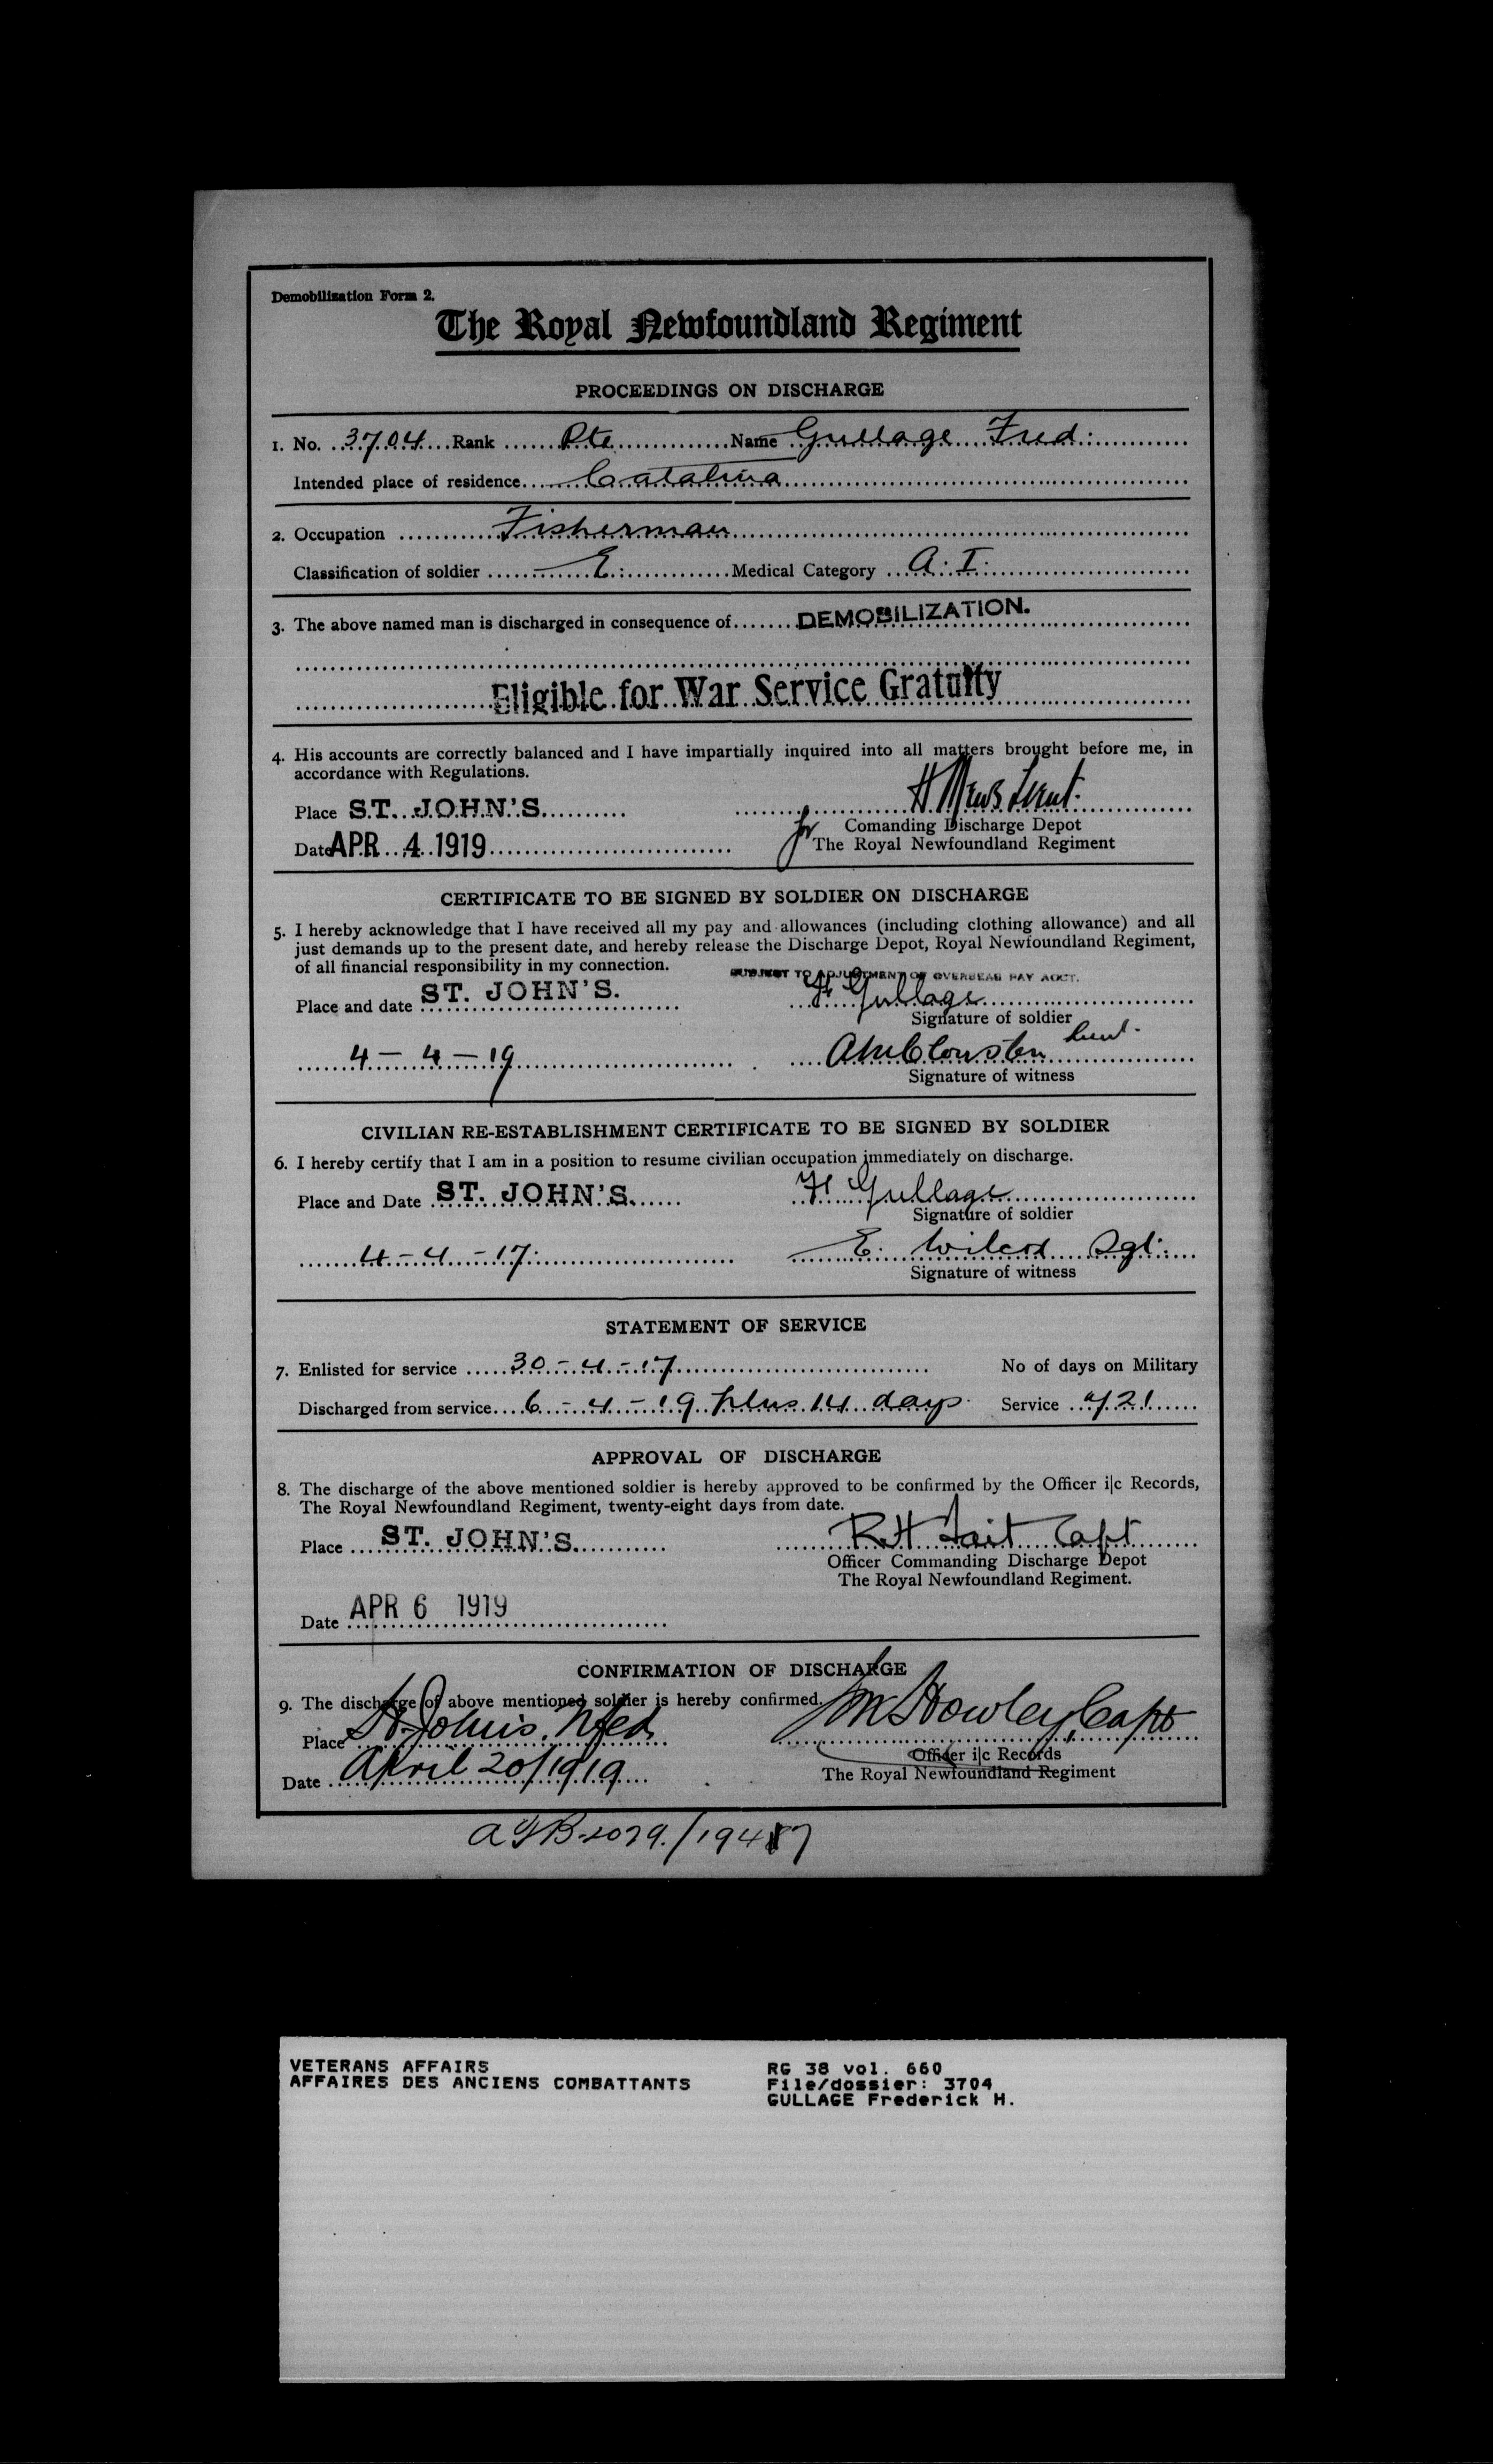 Demobilization Form 2.
The Royal Newfoundland Regiment
PROCEEDINGS ON DISCHARGE
1. No. 3704 Rank Pte Name Gullage Fred:
Intended place of residence Catalina
2. Occupation Fisherman
Classification of soldier E. Medical Category A. I.
3. The above named man is discharged in consequence of DEMOBILIZATION.
Eligible for War Service Gratuity
4. His accounts are correctly balanced and I have impartially inquired into all matters brought before me, in
accordance with Regulations.
Place ST. JOHN'S H Mews Lieut.
for Comanding Discharge Depot
Date APR 4 1919 The Royal Newfoundland Regiment
CERTIFICATE TO BE SIGNED BY SOLDIER ON DISCHARGE
5. I hereby acknowledge that I have received all my pay and allowances (including clothing allowance) and all
just demands up to the present date, and hereby release the Discharge Depot, Royal Newfoundland Regiment,
of all financial responsibility in my connection.
SUBJECT TO ADJUSTMENT OF OVERSEAS PAY ACCT.
Place and date ST. JOHN'S. F Gullage
Signature of soldier
4 – 4 – 19 Clouston Lieut.
Signature of witness
CIVILIAN RE-ESTABLISHMENT CERTIFICATE TO BE SIGNED BY SOLDIER
6. I hereby certify that I am in a position to resume civilian occupation immediately on discharge.
Place and Date ST. JOHN'S. F Gullage
Signature of soldier
4 – 4 – 17. E. Wilcox Sgt.
Signature of witness
STATEMENT OF SERVICE
7. Enlisted for service 30 – 4 – 17 No of days on Military
Discharged from service 6 – 4 – 19 plus 14 days. Service 721
APPROVAL OF DISCHARGE
8. The discharge of the above mentioned soldier is hereby approved to be confirmed by the Officer i|c Records,
The Royal Newfoundland Regiment, twenty-eight days from date.
Place ST. JOHN'S. R H Tait Capt
Officer Commanding Discharge Depot
The Royal Newfoundland Regiment.
Date APR 6 1919
CONFIRMATION OF DISCHARGE
9. The discharge of above mentioned soldier is hereby confirmed.
Place St. John's. Nfed Howley, Capt
Officer i|c Records
Date April 20/1919 The Royal Newfoundland Regiment
VETERANS AFFAIRS
AFFAIRES DES ANCIENS COMBATTANTS
RG 38 vol. 660
File/dossier: 3704
GULLAGE Frederick H.